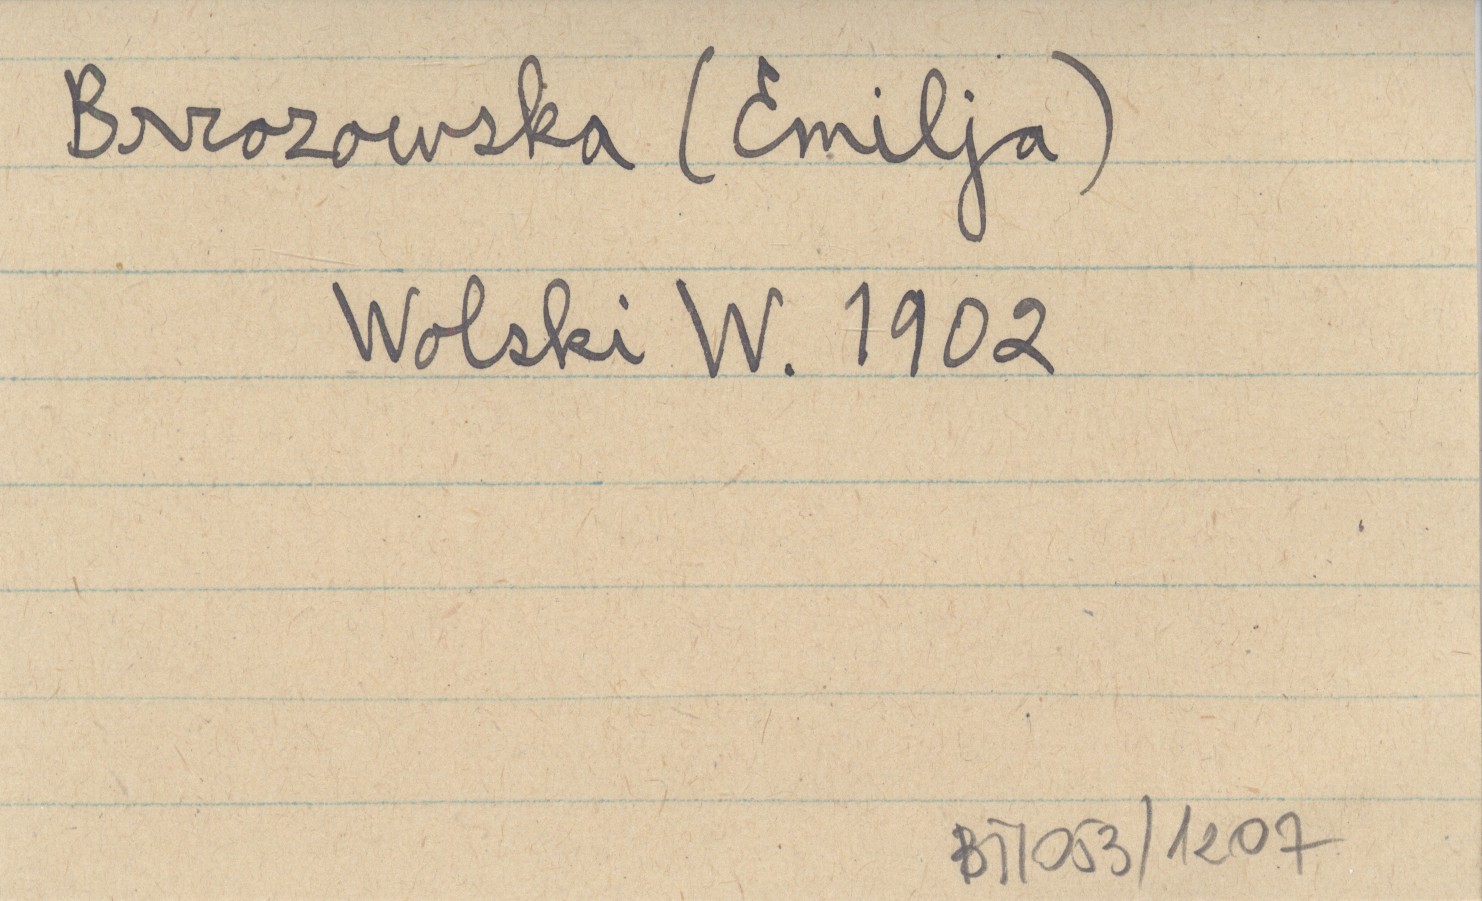 Brzozowska (Emilja)
Wolski W. 1902
BT/053/1207